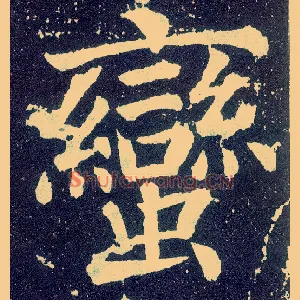 蠻
Shufawang.cn